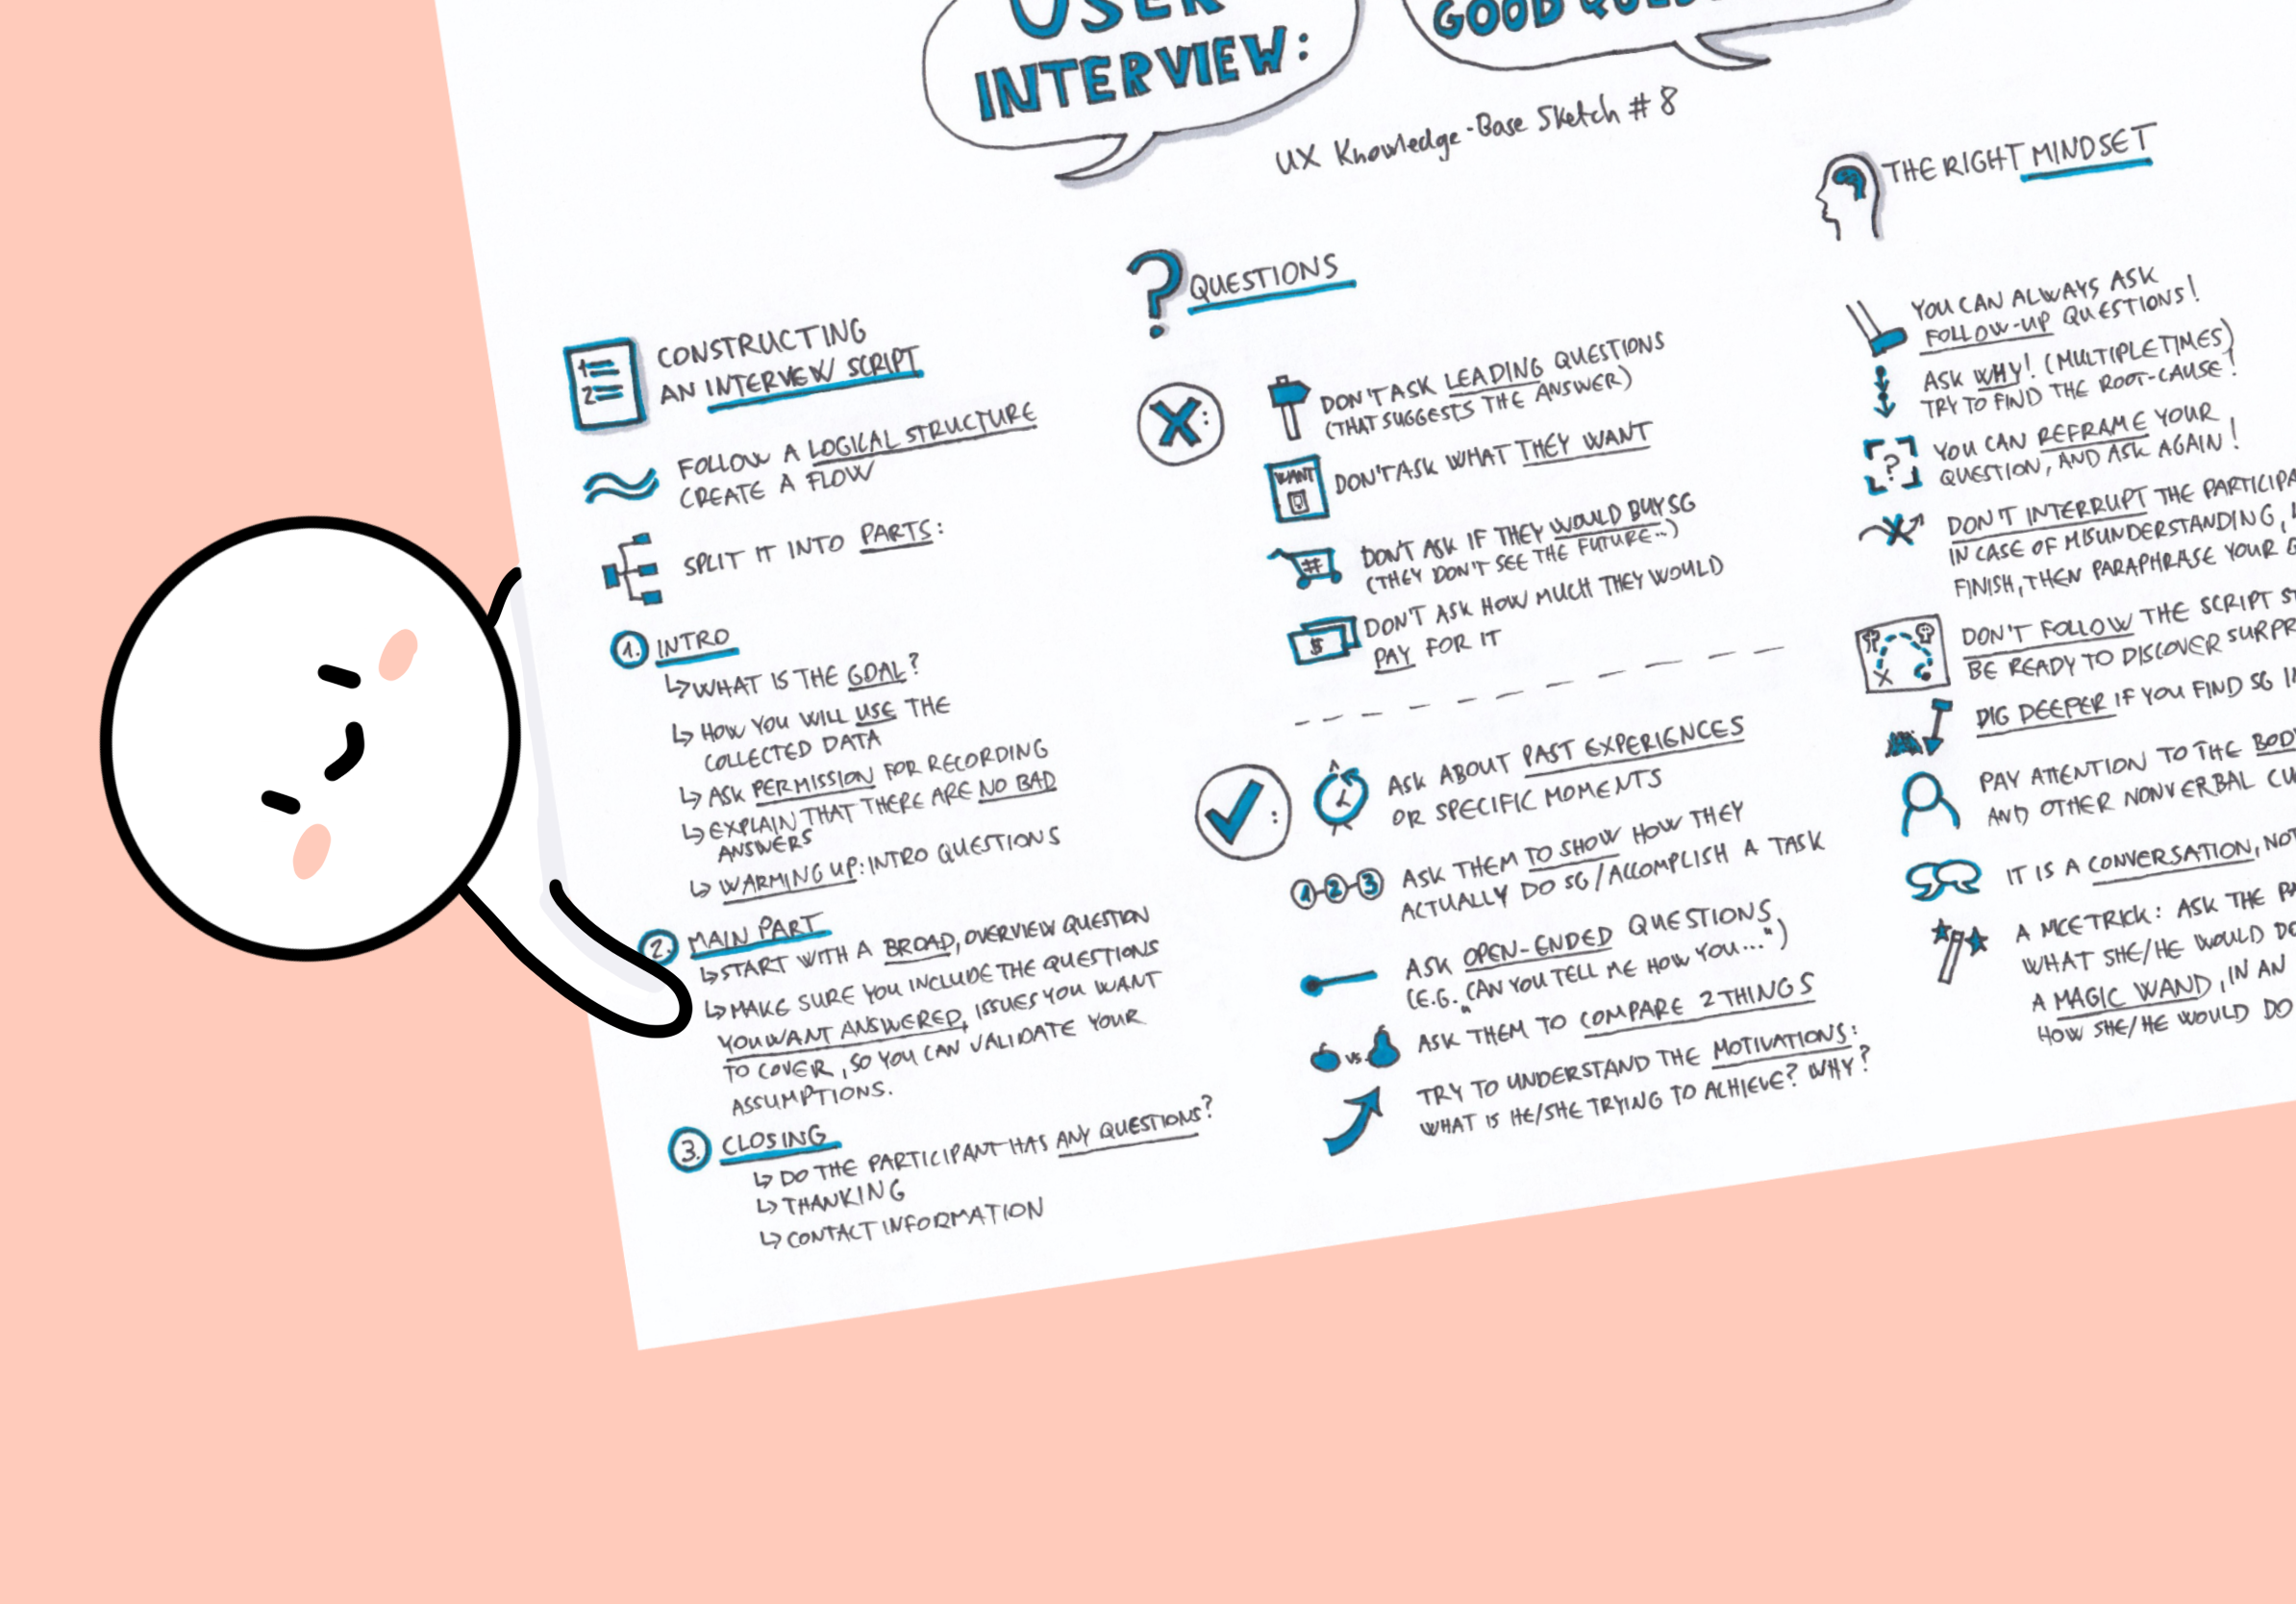 USER
INTERVIEW:
GOOD
UX Knowledge-Base Sketch #8
CONSTRUCTING
AN INTERVIEW SCRIPT
FOLLOW A LOGICAL STRUCTURE
CREATE A FLOW
SPLIT IT INTO PARTS:
1. INTRO
↳ WHAT IS THE GOAL?
↳ HOW YOU WILL USE THE
COLLECTED DATA
↳ ASK PERMISSION FOR RECORDING
↳ EXPLAIN THAT THERE ARE NO BAD
ANSWERS
↳ WARMING UP: INTRO QUESTIONS
2. MAIN PART
↳ START WITH A BROAD, OVERVIEW QUESTION
↳ MAKE SURE YOU INCLUDE THE QUESTIONS
YOU WANT ANSWERED, ISSUES YOU WANT
TO COVER, SO YOU CAN VALIDATE YOUR
ASSUMPTIONS.
3. CLOSING
↳ DO THE PARTICIPANT HAS ANY QUESTIONS?
↳ THANKING
↳ CONTACT INFORMATION
? QUESTIONS
X:
DON'T ASK LEADING QUESTIONS
(THAT SUGGESTS THE ANSWER)
WANT
DON'T ASK WHAT THEY WANT
#
DON'T ASK IF THEY WOULD BUY SG
(THEY DON'T SEE THE FUTURE..)
$
DON'T ASK HOW MUCH THEY WOULD
PAY FOR IT
ASK ABOUT PAST EXPERIENCES
OR SPECIFIC MOMENTS
1-2-3
ASK THEM TO SHOW HOW THEY
ACTUALLY DO SG/ACCOMPLISH A TASK
ASK OPEN-ENDED QUESTIONS
(E.G. "CAN YOU TELL ME HOW YOU...")
VS.
ASK THEM TO COMPARE 2 THINGS
TRY TO UNDERSTAND THE MOTIVATIONS:
WHAT IS HE/SHE TRYING TO ACHIEVE? WHY?
THE RIGHT MINDSET
YOU CAN ALWAYS ASK
FOLLOW-UP QUESTIONS!
ASK WHY! (MULTIPLE TIMES)
TRY TO FIND THE ROOT-CAUSE!
?
YOU CAN REFRAME YOUR
QUESTION, AND ASK AGAIN!
DON'T INTERRUPT THE PARTICIPA
IN CASE OF MISUNDERSTANDING,
FINISH, THEN PARAPHRASE YOUR
DON'T FOLLOW THE SCRIPT
BE READY TO DISCOVER SURPR
DIG DEEPER IF YOU FIND SG
PAY ATTENTION TO THE BODY
AND OTHER NONVERBAL CU
IT IS A CONVERSATION, NOT
A NICE TRICK: ASK THE
WHAT SHE/HE WOULD DO
A MAGIC WAND, IN AN
HOW SHE/HE WOULD DO